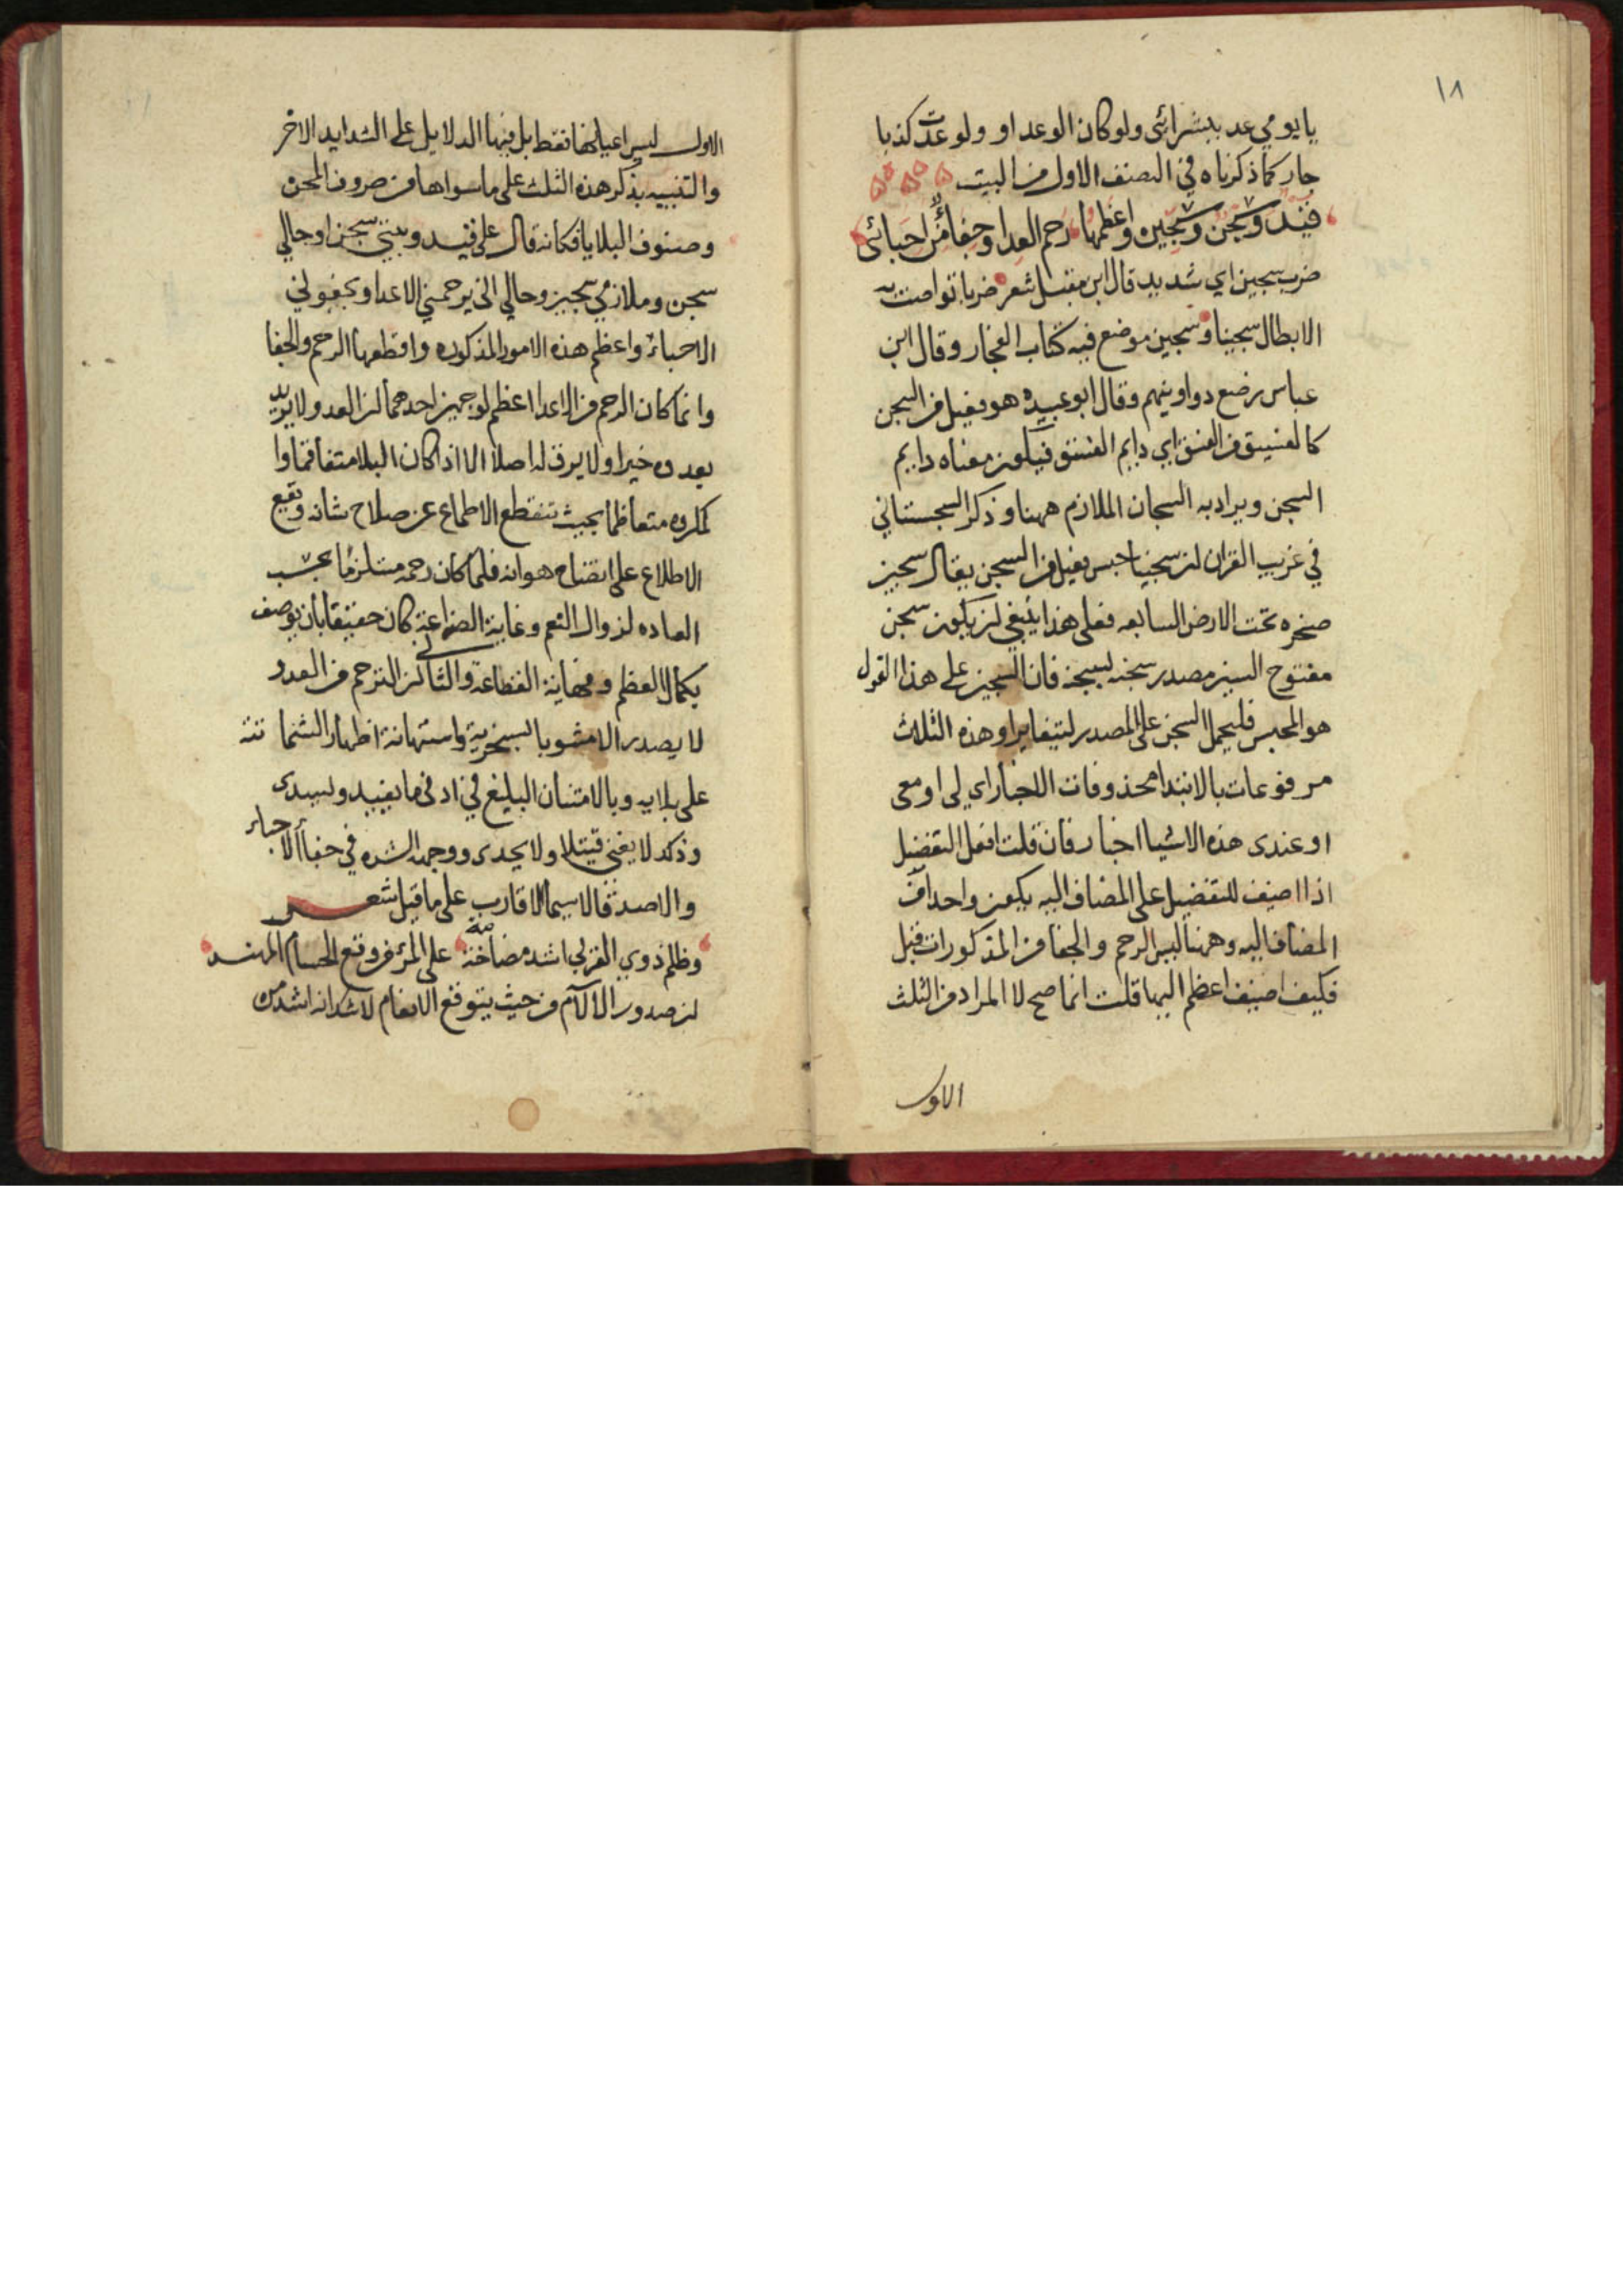 ١٨
يا يومي عد ببشرائي ولو كان الوعد او ولو عدت كذبا
جار كما ذكرناه في الصنف الاول من البيت
قيد وسجن وسجين واعظمها رحم العدا وجفا من احبائي
ضرب سجين اي شديد قال ابن مقبل شعر ضربا تواصت به
الابطال سجينا وسجين موضع فيه كتاب الفجار وقال ابن
عباس رضع دواوينهم وقال ابو عبيده هو فعيل من السجن
كالفسيق من الفسق اي دايم الفسق فيكون معناه دايم
السجن ويراد به السجان الملازم ههنا وذكر السجستاني
في غريب القران ان سجينا حبس فعيل من السجن يقال سجين
صخره تحت الارض السابعه فعلى هذا ينبغي ان يكون سجن
مفتوح السين مصدر سجنه يسجنه فان السجين على هذا القول
هو المحبس فليحمل السجن على المصدر ليتغايرا وهذه الثلاث
مرفوعات بالابتدا محذوفات الاخبار اي لي او معي
او عندى هذه الاشيا اخبار فان قلت افعل التفضيل
اذا اضيف للتفضيل على المضاف اليه يكون واحدا من
المضاف اليه وههنا ليس الرحم والجفا من المذكورات قبل
فكيف اضيف اعظم اليها قلت انما صح لا المراد من الثلث
الاول
الاول ليس اعيانها فقط بل فيها الدلايل على الشدايد الاخر
والتنبيه بذكر هذه الثلث على ما سواها من صروف المحن
وصنوف البلايا فكانه قال على قيد وبيتي سجن او حالي
سجن وملازمي سجين وحالي اني يرحمني الاعدا ويجفوني
الاحباء واعظم هذه الامور المذكوره وافظعها الرحم والجفا
وانما كان الرحم من الاعدا اعظم لوجهين احدهما ان العدو لا يريد
بعدوه خيرا ولا يرق له اصلا الا اذا كان البلا متفاقما وا
لمكروه متعاظما بحيث تنقطع الاطماع عن صلاح شانه ويقع
الاطلاع على اتضاح هوانه فلما كان رحمه مستلزما بحسب
العاده لزوال النعم وغاية الضراعة كان حقيقا بان يوصف
بكمال العظم ونهاية الفظاعة والثاني ان الترحم من العدو
لا يصدر الا مشوبا بسخرية واستهانة اظهار الشماتته
على بلايه وبالامتنان البليغ في ادنى ما يفيد ويسدى
وذلك لا يغني فتيلا ولا يجدى ووجه الشده في جفا الاحباء
والاصدقا لا سيما الاقارب على ما قيل شعر
وظلم ذوي القربى اشد مضاضة على المرء من وقع الحسام المهند
ان صدور الالآم من حيث يتوقع الانعام لا شك انه اشد من